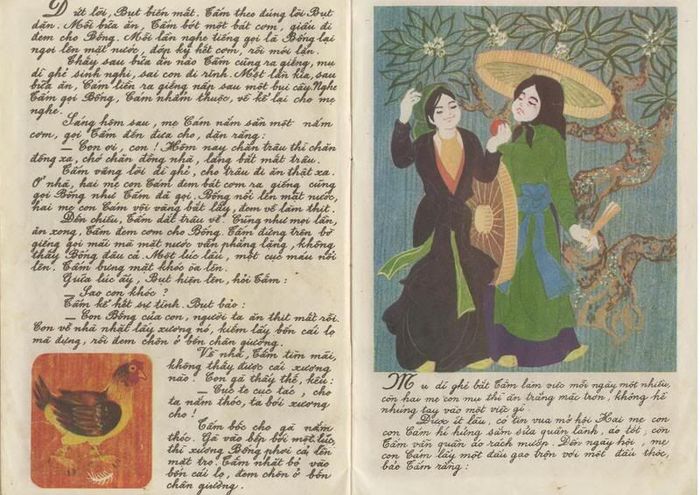 Dứt lời, Bụt biến mất. Tấm theo đúng lời Bụt
dặn. Mỗi bữa ăn, Tấm bớt một bát cơm, giấu đi
đem cho Bống. Mỗi lần nghe tiếng gọi là Bống lại
ngoi lên mặt nước, đớp kỳ hết cơm, rồi mới lặn.
Thấy sau bữa ăn nào Tấm cũng ra giếng, mụ
dì ghẻ sinh nghi, sai con đi rình. Một lần kia, sau
bữa ăn, Cám liền ra giếng nấp sau một bụi cây. Nghe
Tấm gọi Bống, Cám nhẩm thuộc, về kể lại cho mẹ
nghe.
Sáng hôm sau, mẹ Cám nắm sẵn một nắm
cơm, gọi Tấm đến đưa cho, dặn rằng:
— Con ơi, con! Hôm nay chăn trâu thì chăn
đồng xa, chớ chăn đồng nhà, làng bắt mất trâu.
Tấm vâng lời dì ghẻ, cho trâu đi ăn thật xa.
Ở nhà, hai mẹ con Cám đem bát cơm ra giếng cũng
gọi Bống như Tấm đã gọi. Bống nổi lên mặt nước,
hai mẹ con Cám vội vàng bắt lấy, đem về làm thịt.
Đến chiều, Tấm dắt trâu về. Cũng như mọi lần,
ăn xong, Tấm đem cơm cho Bống. Tấm đứng trên bờ
giếng gọi mãi mà mặt nước vẫn phẳng lặng, không
thấy Bống đâu cả. Một lúc lâu, một cục máu nổi
lên. Tấm bưng mặt khóc òa lên.
Giữa lúc ấy, Bụt hiện lên, hỏi Tấm:
— Sao con khóc?
Tấm kể hết sự tình. Bụt bảo:
— Con Bống của con, người ta ăn thịt mất rồi.
Con về nhà nhặt lấy xương nó, kiếm lấy bốn cái lọ
mà đựng, rồi đem chôn ở bốn chân giường.
Về nhà, Tấm tìm mãi,
không thấy được cái xương
nào! Con gà thấy thế, kêu:
— Cục te cục tác, cho
ta nắm thóc, ta bới xương
cho!
Tấm bốc cho gà nắm
thóc. Gà vào bếp bới một lúc,
thì xương Bống phơi cả lên
mặt tro. Tấm nhặt bỏ vào
bốn cái lọ, đem chôn ở bốn
chân giường.
Mụ dì ghẻ bắt Tấm làm vực mỗi ngày một nhiều,
còn hai mẹ con mụ thì ăn trắng mặc trơn, không hề
nhúng tay vào một việc gì.
Được ít lâu, có tin vua mở hội. Hai mẹ con
con Cám hí hửng sắm sửa quần lành, áo tốt, còn
Tấm vẫn quần áo rách mướp. Đến ngày hội, mẹ
con Cám lấy một đấu gạo trộn với một đấu thóc,
bảo Tấm rằng: